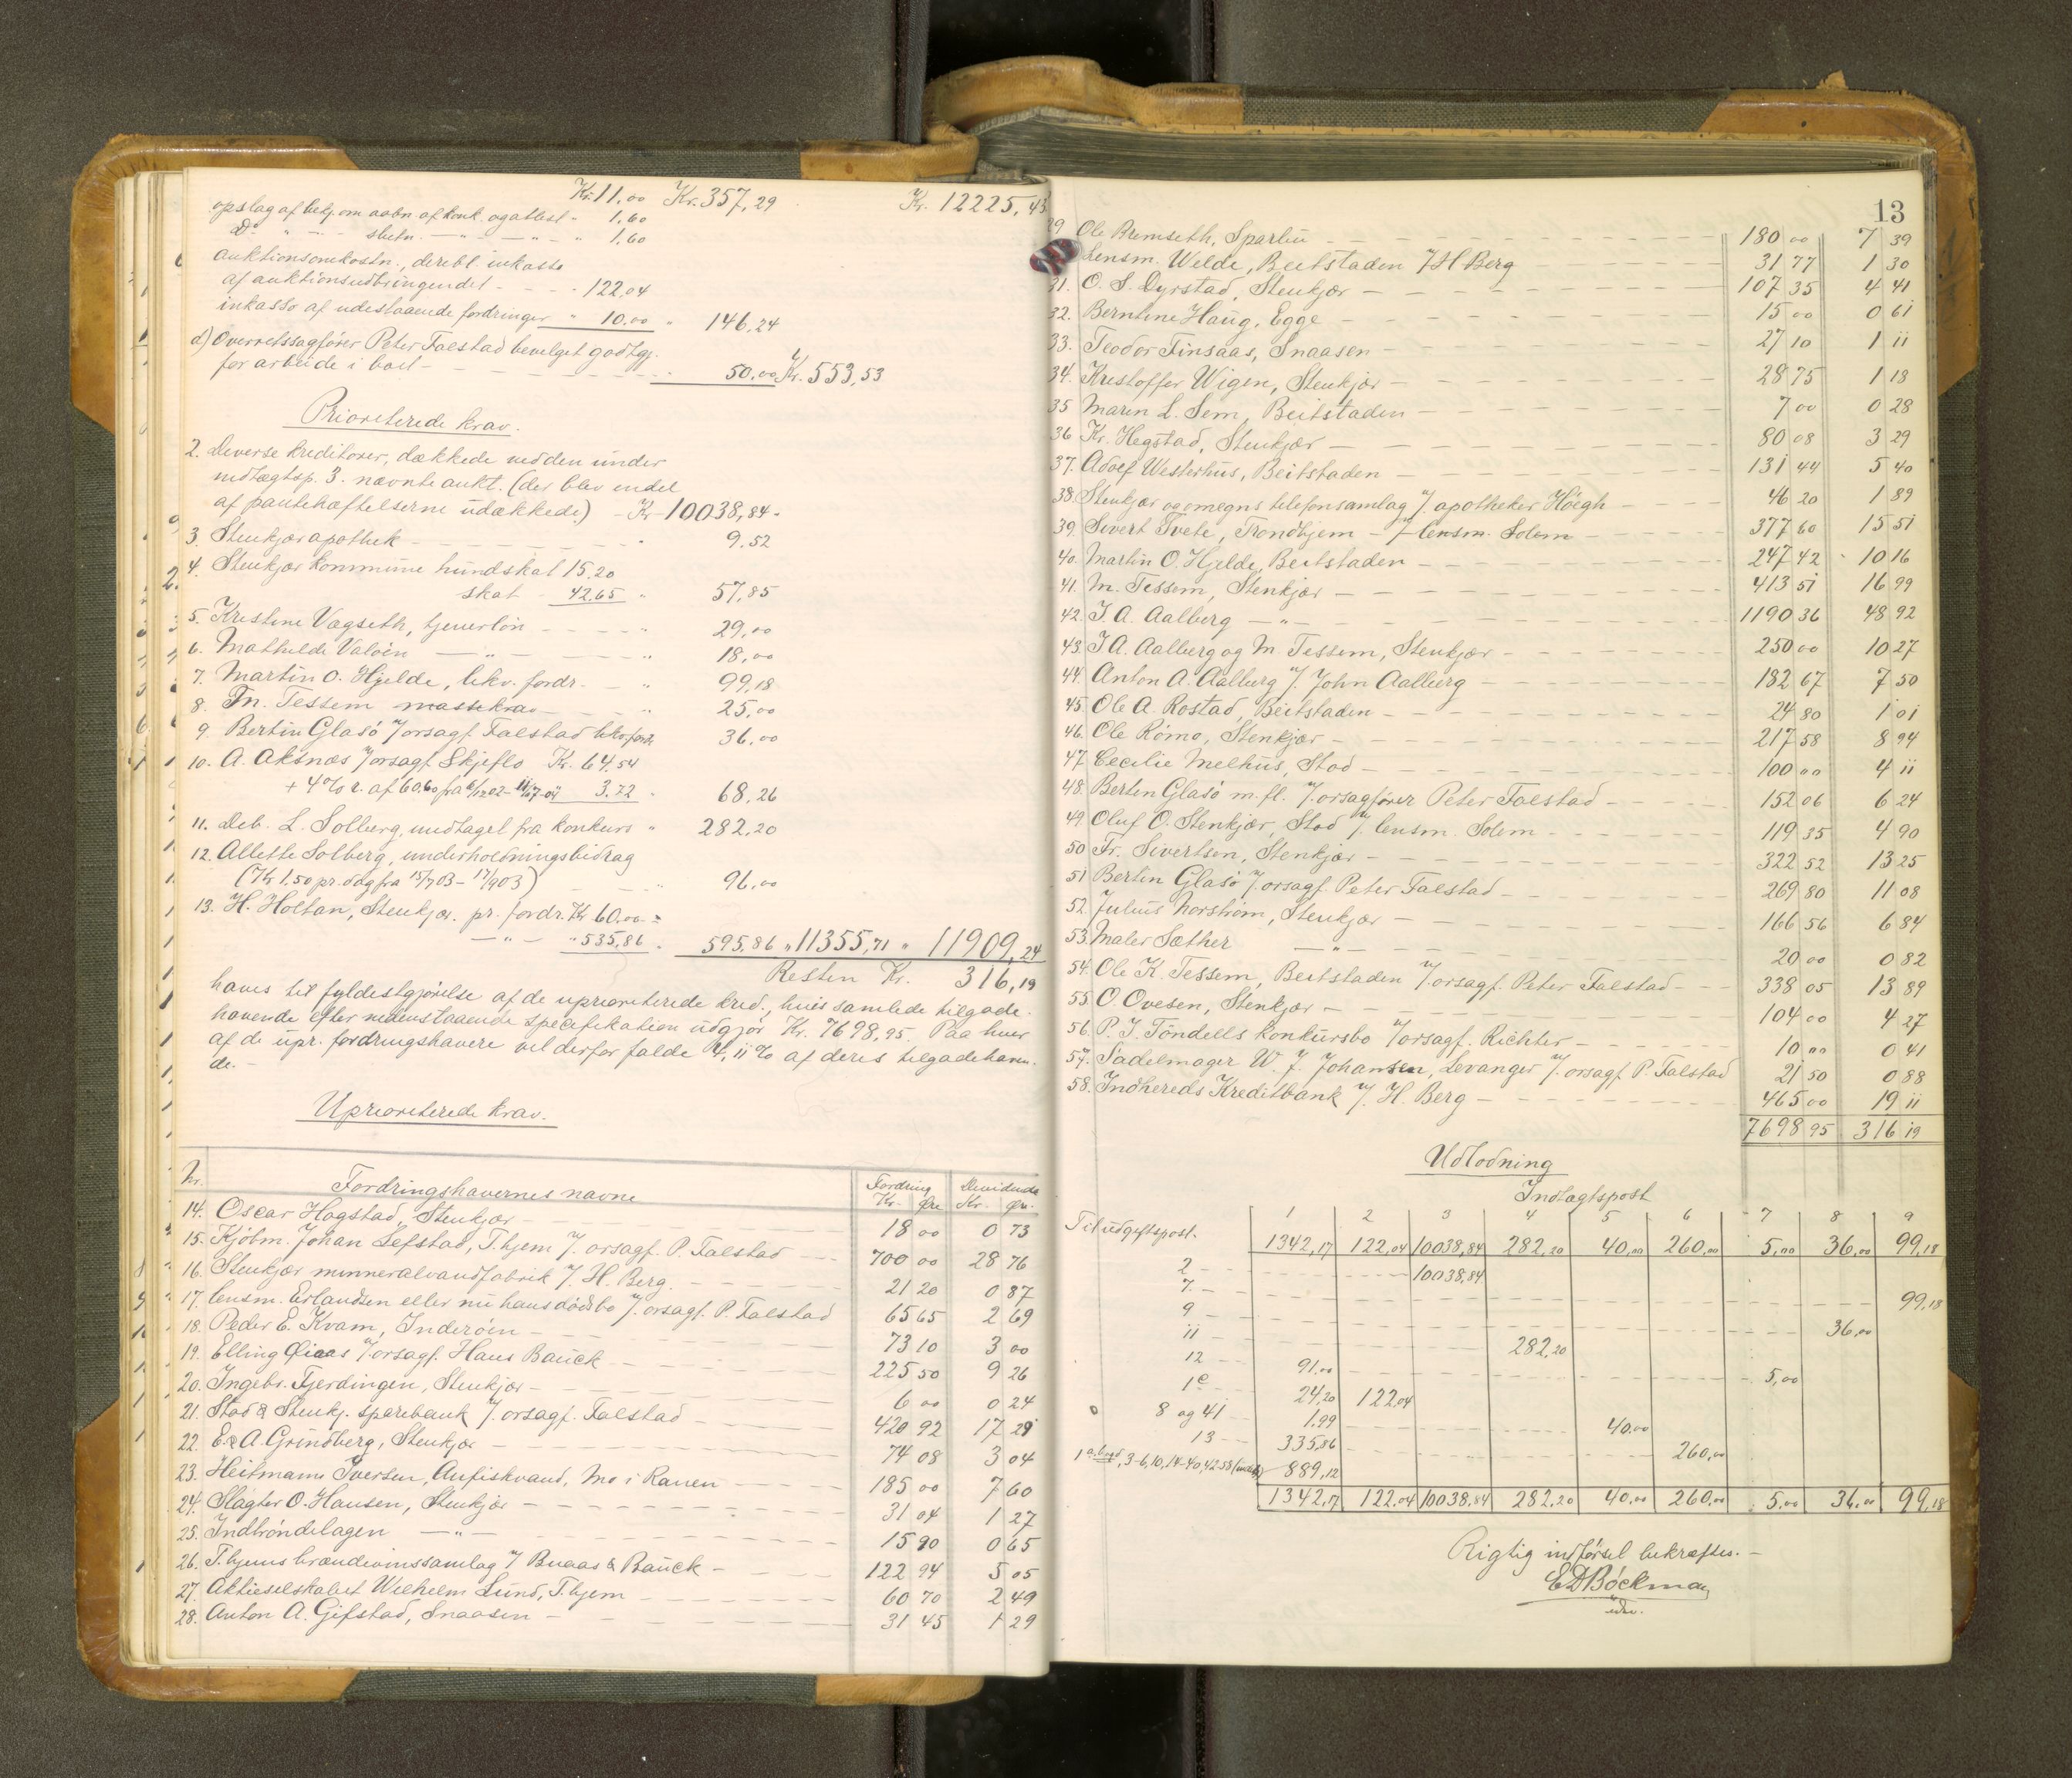 Kr. 11,00 Kr. 357,29 Kr. 12225,43
opslag af bekj. om aabn. af konk. og attest - 1,60
Do " - slutn. - " - " - " 1,60
auktionsomkostn., derebl. inkasso
af auktionsudbringendet - - - - 122,04
inkasso af udestaaende fordringer " 10,00 " 146,24
d) Overretssagfører Peter Falstad bevilget godtgj.
for arbeide i boet - - - - - 50,00 Kr. 553,53
Prioriterede krav.
2. Diverse kreditorer, dækkede ved den under
indtægtsp. 3. nævnte aukt. (der blev endel
af pantehæftelserne udækkede) - Kr. 10038,84 -
3. Stenkjær apothek - - - - " 9,52
4. Stenkjær kommune hundskat 15,20
skat - 42,65 " 57,85
5. Kristine Vagseth, tjenerløn - - - " 29,00
6. Mathilde Valøen - " - - - " 18,00
7. Martin O. Hjelde, likv. fordr. - - " 99,18
8. M. Tessem massekrav - - " 25,00
9. Bertin Glasø v/ orsagf. Falstad likv. fordr. 36,00
10. A. Aksnæs v/ orsagf. Skjeflo Kr. 64,54
+ 4% r. af 60,60 fra 6/12 02 - 11/7 04 3,72 - 68,26
11. Deb. L. Solberg, undtaget fra konkurs " 282,20
12. Allette Solberg, underholdningsbidrag
(Kr. 1,50 pr. dag fra 15/7 03 - 17/9 03) - - " 96,00
13. H. Holtan, Stenkjær. pr. fordr. Kr. 60,00 -
- " - " 535,86 - 595,86 " 11355,71 " 11909,24
Resten Kr. 316,19
haves til fyldestgjørelse af de uprioriterede kred., hvis samlede tilgode-
havende efter nedenstaaende specifikation udgjør Kr. 7698,95. Paa hver
af de upr. fordringshavere vil derfor falde 4,11 % af deres tilgodehaven-
de. -
Uprioriterede krav.
Nr. Fordringshavernes navne Fordring Kr. Øre Dividende Kr. Øre.
14. Oscar Hagstad, Stenkjær - 18 00 0 73
15. Kjøbm. Johan Lefstad, T.hjem v/ orsagf. P. Falstad - 700 00 28 76
16. Stenkjær minneralvandfabrik v/ H. Berg - 21 20 0 87
17. Lensm. Erlandsen eller nu hans dødsbo v/ orsagf. P. Falstad 65 65 2 69
18. Peder E. Kvam, Inderøen - 73 10 3 00
19. Elling Qiaas v/ orsagf. Hans Bauck - 225 50 9 26
20. Ingebr. Fjerdingen, Stenkjær - 6 00 0 24
21. Stod & Stenkj. sparebank v/ orsagf. Falstad - 420 92 17 29
22. E. & A. Grindberg, Stenkjær - 74 08 3 04
23. Heitmann Iversen, Anfiskvand, Mo i Ranen - 185 00 7 60
24. Slagter O. Hansen, Stenkjær - 31 04 1 27
25. Indtrøndelagen - " - 15 90 0 65
26. T.hjems brændevinssamlag v/ Buaas & Bauck - 122 94 5 05
27. Aktieselskabet Wilhelm Lund, T.hjem - 60 70 2 49
28. Anton A. Gifstad, Snaasen - 31 45 1 29
13
29 Ole Bremseth, Sparbu - 180 00 7 39
Lensm. Welde, Beitstaden v/ H Berg 31 77 1 30
31. O. S. Dyrstad, Stenkjær - 107 35 4 41
32. Berntine Haug, Egge - 15 00 0 61
33. Teodor Finsaas, Snaasen - 27 10 1 11
34. Kristoffer Wigen, Stenkjær - 28 75 1 18
35 Maren L. Sem, Beitstaden - 7 00 0 28
36 Kr. Hegstad, Stenkjær - 80 08 3 29
37. Adolf Westerhus, Beitstaden - 131 44 5 40
38. Stenkjær og omegns telefonsamlag v/ apotheker Høegh - 46 20 1 89
39. Sivert Tvete, Trondhjem - v/ lensm. Solem - 377 60 15 51
40. Martin O. Hjelde, Beitstaden - 247 42 10 16
41. M. Tessem, Stenkjær - 413 51 16 99
42. I. A. Aalberg - " - 1190 36 48 92
43. I A. Aalberg og M Tessem, Stenkjær - 250 00 10 27
44. Anton A. Aalberg v/ John Aalberg - 182 67 7 50
45. Ole A. Rostad, Beitstaden - 24 80 1 01
46. Ole Rømo, Stenkjær - 217 58 8 94
47. Cecilie Melhus, Stod - 100 00 4 11
48. Bertin Glasø m. fl. v/ orsagfører Peter Falstad - 152 06 6 24
49. Oluf O. Stenkjær, Stod v/ lensm. Solem - 119 35 4 90
50 Fr. Sivertsen, Stenkjær - 322 52 13 25
51 Bertin Glasø v/ orsagf. Peter Falstad - 269 80 11 08
52. Julius Norstrøm, Stenkjær - 166 56 6 84
53. Maler Sæther - " - 20 00 0 82
54. Ole K. Tessem, Beitstaden v/ orsagf. Peter Falstad - 338 05 13 89
55. O. Ovesen, Stenkjær - 104 00 4 27
56. P. I. Tøndells konkursbo v/ orsagf. Richter - 10 00 0 41
57. Sadelmager W. J. Johansen, Levanger v/ orsagf. P. Falstad 21 50 0 88
58. Indhereds Kreditbank v/ H. Berg - 465 00 19 11
7698 95 316 19
Udlodning
Indtægtspost
Til udgiftspost. 1 2 3 4 5 6 7 8 9
1342,17 122,04 10038,84 282,20 40,00 260,00 5,00 36,00 99,18
2 - 10038,84
7. - 99,18
9 - 36,00
11 - 282,20
12 - 91,00 5,00
1c - 24,20 122,04
8 og 41 1,99 40,00
13 - 335,86 260,00
1 a, b og d, 3-6, 10, 14-40, 42-58 889,12
1342,17 122,04 10038,84 282,20 40,00 260,00 5,00 36,00 99,18
Rigtig indførsel bekræftes. -
E D Bøckman